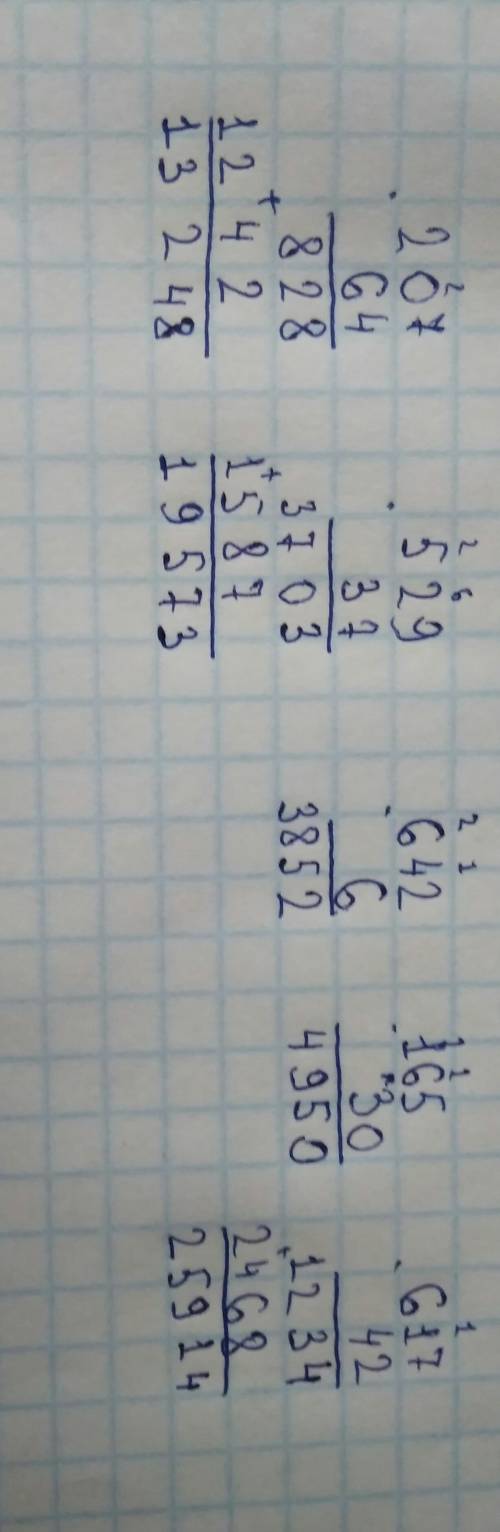 2
· 207
64
828
+
1242
13248
2 6
· 529
37
3703
+
1587
19573
2 1
· 642
6
3852
1 1
· 165
· 30
4950
1
· 617
42
1234
+
2468
25914